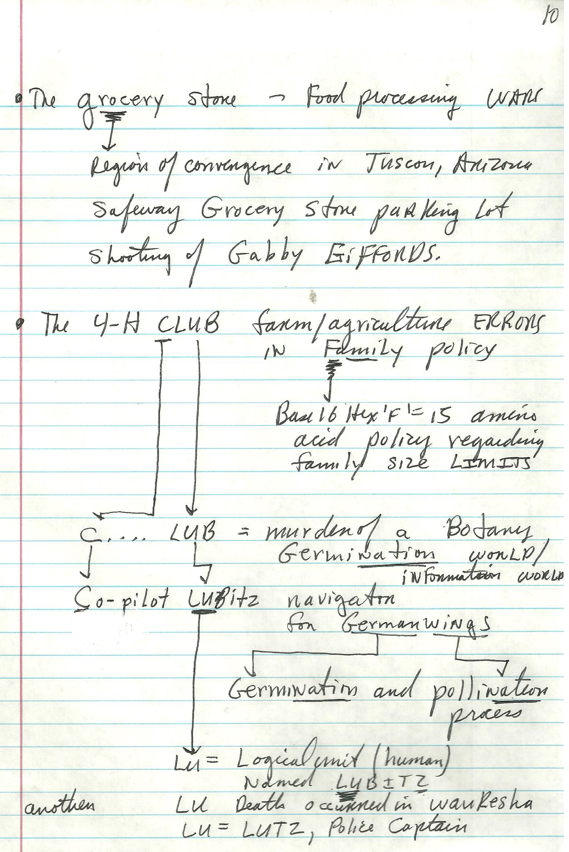 10
• The grocery store – Food processing WARS
Region of convergence in Tuscon, Arizona
Safeway Grocery Store parking lot
Shooting of Gabby GIFFORDS.
• The 4-H CLUB farm/agriculture ERRORS
IN Family policy
Base 16 Hex 'F' = 15 amino
acid policy regarding
family size LIMITS
C.... LUB = murder of a Botany
Germination WORLD/
information WORLD
Co-pilot LUBitz navigator
for Germanwings
Germination and pollination
process
LU = Logical unit (human)
Named LUBITZ
another LU Death occurred in Waukesha
LU = LUTZ, Police Captain